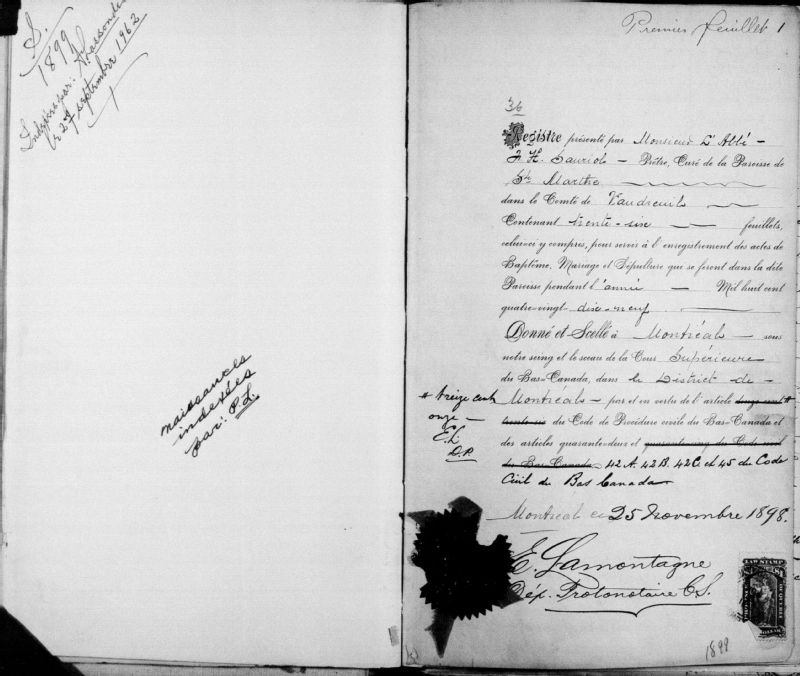 S.
1899
Indexé par:
le 27 septembre 1962
naissances
indexées
par: P.L.
Premier feuillet 1
36
Registre présenté par Monsieur L'Abbé –
J. H. Lauriol – Prêtre, Curé de la Paroisse de
Ste Marthe
dans le Comté de Vaudreuil
Contenant trente-six — feuillets,
celui-ci y compris, pour servir à l'enregistrement des actes de
Baptême, Mariage et Sépulture que se feront dans la dite
Paroisse pendant l'année — Mil huit cent
quatre-vingt dix-neuf
Donné et Scellé à Montréal – sous
notre seing et le sceau de la Cour Supérieure
du Bas-Canada, dans le District de –
Montréal – par et en vertu de l'article douze cent *
trente-six du Code de Procédure civile du Bas-Canada et
des articles quarante-deux et quarante-cinq du Code civil
du Bas-Canada 42 A. 42 B. 42 C. et 45 du Code
Civil du Bas Canada
* treize cent
onze –
E. L.
D.P.
Montréal ce 25 Novembre 1898.
E. Lamontagne
Dép. Protonotaire C.S.
LAW STAMP
1899